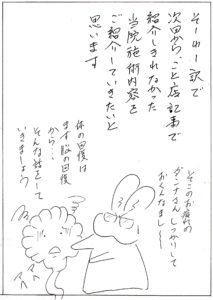 そーゆー訳で
次回から、ごと店記事で
紹介しきれなかった
当院施術内容を
ご紹介していきたいと
思います
そこのお疲れの
ダンナさん、しっかりして
おくんなまし〜
体の回復は
まず脳の回復
から…
そんな話をして
いきましょう